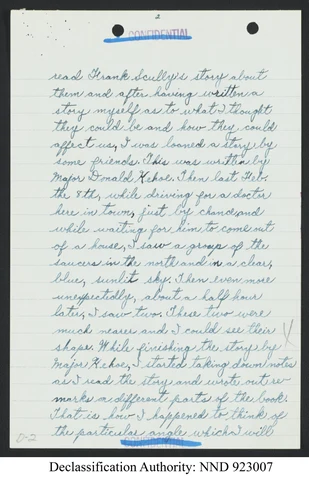 2
CONFIDENTIAL
read Frank Scully's story about
them and after having written a
story myself as to what I thought
they could be and how they could
affect us, I was loaned a story by
some friends. This was written by
Major Donald Kehoe. Then last Feb.
the 8th, while driving for a doctor
here in town, just by chance and
while waiting for him to come out
of a house, I saw a group of the
saucers in the north and in a clear,
blue, sunlit sky. Then even more
unexpectedly, about a half hour
later, I saw two. These two were
much nearer and I could see their
shape. While finishing the story by
Major Kehoe, I started taking down notes
as I read the story and wrote out re-
marks in different parts of the book.
That is how I happened to think of
the particular angle which I will
D-2
CONFIDENTIAL
Declassification Authority: NND 923007